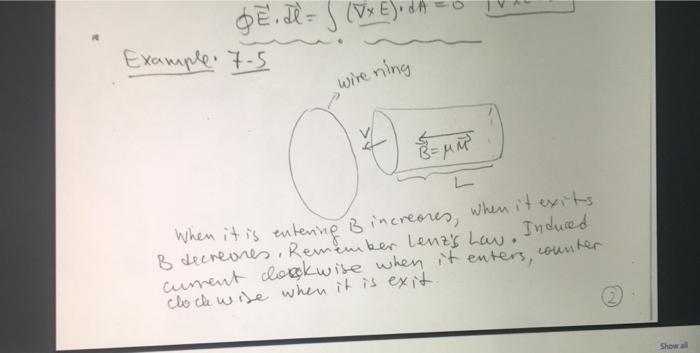 ∮E⃗.d⃗l = ∫(∇×E).dA = 0
Example. 7-5
wire ring
V
B⃗=μM⃗
L
When it is entering B increases, when it exits
B decreases. Remember Lenz's Law. Induced
current clockwise when it enters, counter
clockwise when it is exit.
2
Show all